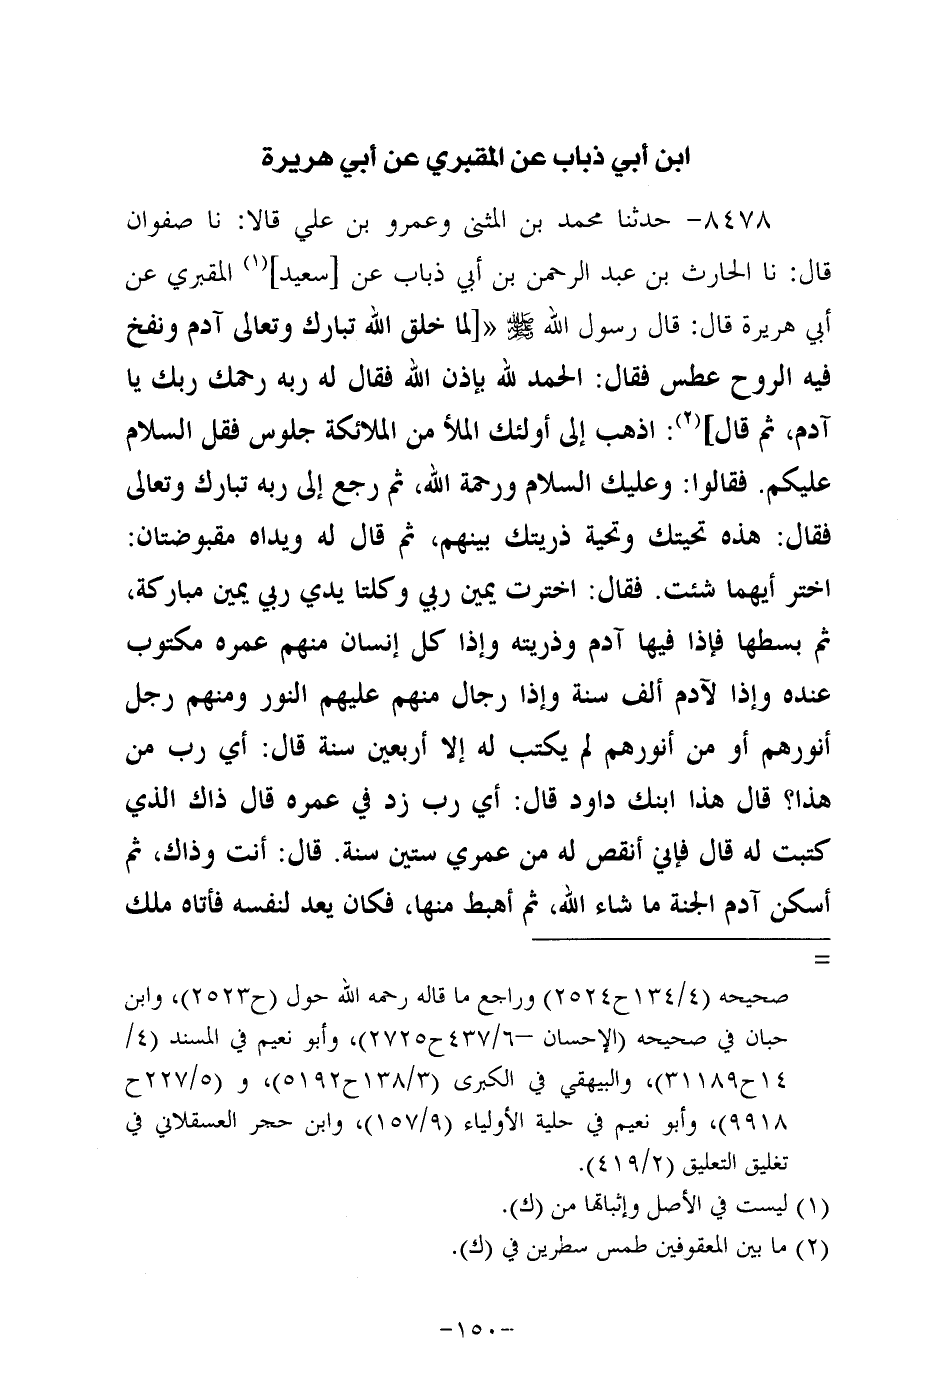 ابن أبي ذباب عن المقبري عن أبي هريرة
٨٤٧٨- حدثنا محمد بن المثنى وعمرو بن علي قالا: نا صفوان
قال: نا الحارث بن عبد الرحمن بن أبي ذباب عن [سعيد](١) المقبري عن
أبي هريرة قال: قال رسول الله ﷺ «[لما خلق الله تبارك وتعالى آدم ونفخ
فيه الروح عطس فقال: الحمد لله بإذن الله فقال له ربه رحمك ربك يا
آدم، ثم قال](٢): اذهب إلى أولئك الملأ من الملائكة جلوس فقل السلام
عليكم. فقالوا: وعليك السلام ورحمة الله، ثم رجع إلى ربه تبارك وتعالى
فقال: هذه تحيتك وتحية ذريتك بينهم، ثم قال له ويداه مقبوضتان:
اختر أيهما شئت. فقال: اخترت يمين ربي وكلتا يدي ربي يمين مباركة،
ثم بسطها فإذا فيها آدم وذريته وإذا كل إنسان منهم عمره مكتوب
عنده وإذا لآدم ألف سنة وإذا رجال منهم عليهم النور ومنهم رجل
أنورهم أو من أنورهم لم يكتب له إلا أربعين سنة قال: أي رب من
هذا؟ قال هذا ابنك داود قال: أي رب زد في عمره قال ذاك الذي
كتبت له قال فإني أنقص له من عمري ستين سنة. قال: أنت وذاك، ثم
أسكن آدم الجنة ما شاء الله، ثم أهبط منها، فكان يعد لنفسه فأتاه ملك
=
صحيحه (١٣٤/٤ح٢٥٢٤) وراجع ما قاله رحمه الله حول (ح٢٥٢٣)، وابن
حبان في صحيحه (الإحسان –٤٣٧/٦ح٢٧٢٥)، وأبو نعيم في المسند (٤/
١٤ح٣١١٨٩)، والبيهقي في الكبرى (١٣٨/٣ح٥١٩٢)، و (٢٢٧/٥ح
٩٩١٨)، وأبو نعيم في حلية الأولياء (١٥٧/٩)، وابن حجر العسقلاني في
تغليق التعليق (٤١٩/٢).
(١) ليست في الأصل وإثباتها من (ك).
(٢) ما بين المعقوفين طمس سطرين في (ك).
-١٥٠-